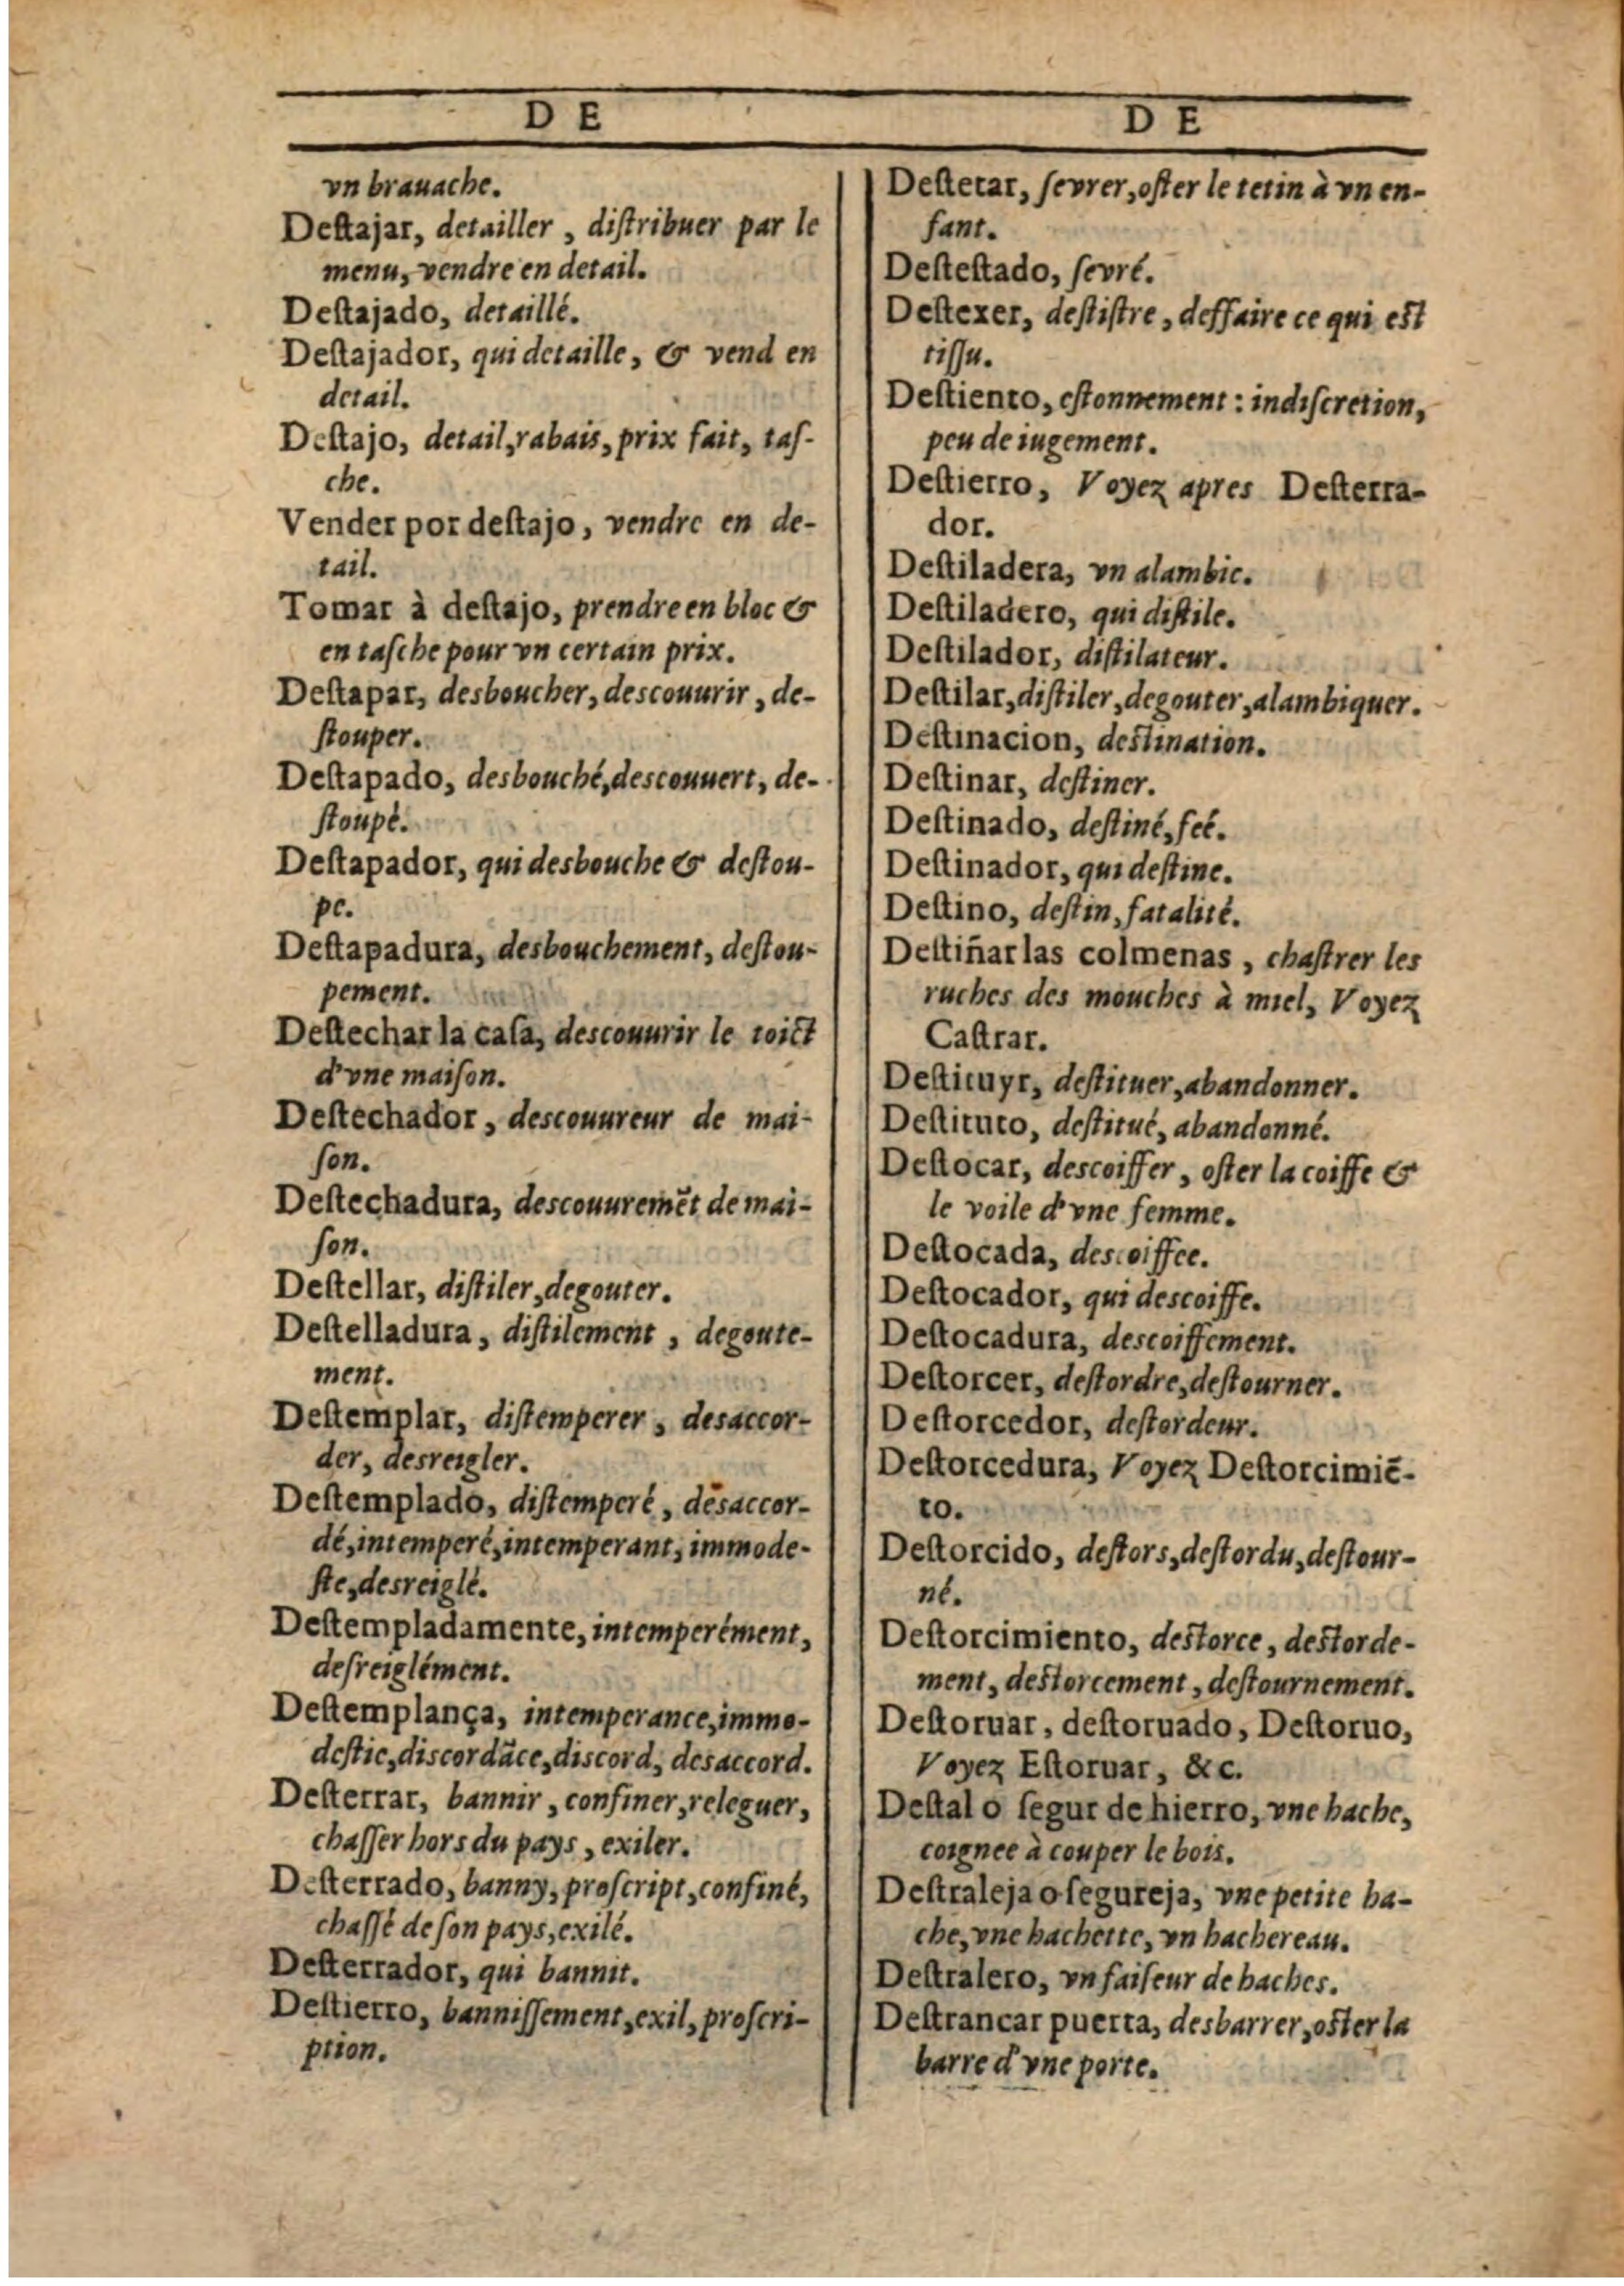 D E
vn brauache.
Deſtajar, detailler, diſtribuer par le
menu, vendre en detail.
Deſtajado, detaillé.
Deſtajador, qui detaille, & vend en
detail.
Deſtajo, detail, rabais, prix fait, taſ-
che.
Vender por deſtajo, vendre en de-
tail.
Tomar à deſtajo, prendre en bloc &
en taſche pour vn certain prix.
Deſtapar, desboucher, descouurir, de-
ſtouper.
Deſtapado, desbouché, descouuert, de-
ſtoupé.
Deſtapador, qui desbouche & deſtou-
pe.
Deſtapadura, desbouchement, deſtou-
pement.
Deſtechar la caſa, descouurir le toict
d'vne maiſon.
Deſtechador, descouureur de mai-
ſon.
Deſtechadura, descouuremẽt de mai-
ſon.
Deſtellar, diſtiler, degouter.
Deſtelladura, diſtilement, degoute-
ment.
Deſtemplar, diſtemperer, desaccor-
der, desreigler.
Deſtemplado, diſtemperé, desaccor-
dé, intemperé, intemperant, immode-
ſte, desreiglé.
Deſtempladamente, intemperément,
deſreiglément.
Deſtemplança, intemperance, immo-
deſtie, discordãce, discord, desaccord.
Deſterrar, bannir, confiner, releguer,
chaſſer hors du pays, exiler.
Deſterrado, banny, proſcript, confiné,
chaſſé de ſon pays, exilé.
Deſterrador, qui bannit.
Deſtierro, banniſſement, exil, proſcri-
ption.
D E
Deſtetar, ſevrer, oſter le tetin à vn en-
fant.
Deſteſtado, ſevré.
Deſtexer, deſtiſtre, deffaire ce qui eſt
tiſſu.
Deſtiento, eſtonnement : indiſcretion,
peu de iugement.
Deſtierro, Voyez apres Deſterra-
dor.
Deſtiladera, vn alambic.
Deſtiladero, qui diſtile.
Deſtilador, diſtilateur.
Deſtilar, diſtiler, degouter, alambiquer.
Deſtinacion, deſtination.
Deſtinar, deſtiner.
Deſtinado, deſtiné, feé.
Deſtinador, qui deſtine.
Deſtino, deſtin, fatalité.
Deſtiñar las colmenas, chaſtrer les
ruches des mouches à miel, Voyez
Caſtrar.
Deſtituyr, deſtituer, abandonner.
Deſtituto, deſtitué, abandonné.
Deſtocar, descoiffer, oſter la coiffe &
le voile d'vne femme.
Deſtocada, descoiffee.
Deſtocador, qui descoiffe.
Deſtocadura, descoiffement.
Deſtorcer, deſtordre, deſtourner.
Deſtorcedor, deſtordeur.
Deſtorcedura, Voyez Deſtorcimiẽ-
to.
Deſtorcido, deſtors, deſtordu, deſtour-
né.
Deſtorcimiento, deſtorce, deſtorde-
ment, deſtorcement, deſtournement.
Deſtoruar, deſtoruado, Deſtoruo,
Voyez Eſtoruar, &c.
Deſtal o ſegur de hierro, vne hache,
coignee à couper le bois.
Deſtraleja o ſegureja, vne petite ha-
che, vne hachette, vn hachereau.
Deſtralero, vn faiſeur de haches.
Deſtrancar puerta, desbarrer, oſter la
barre d'vne porte.